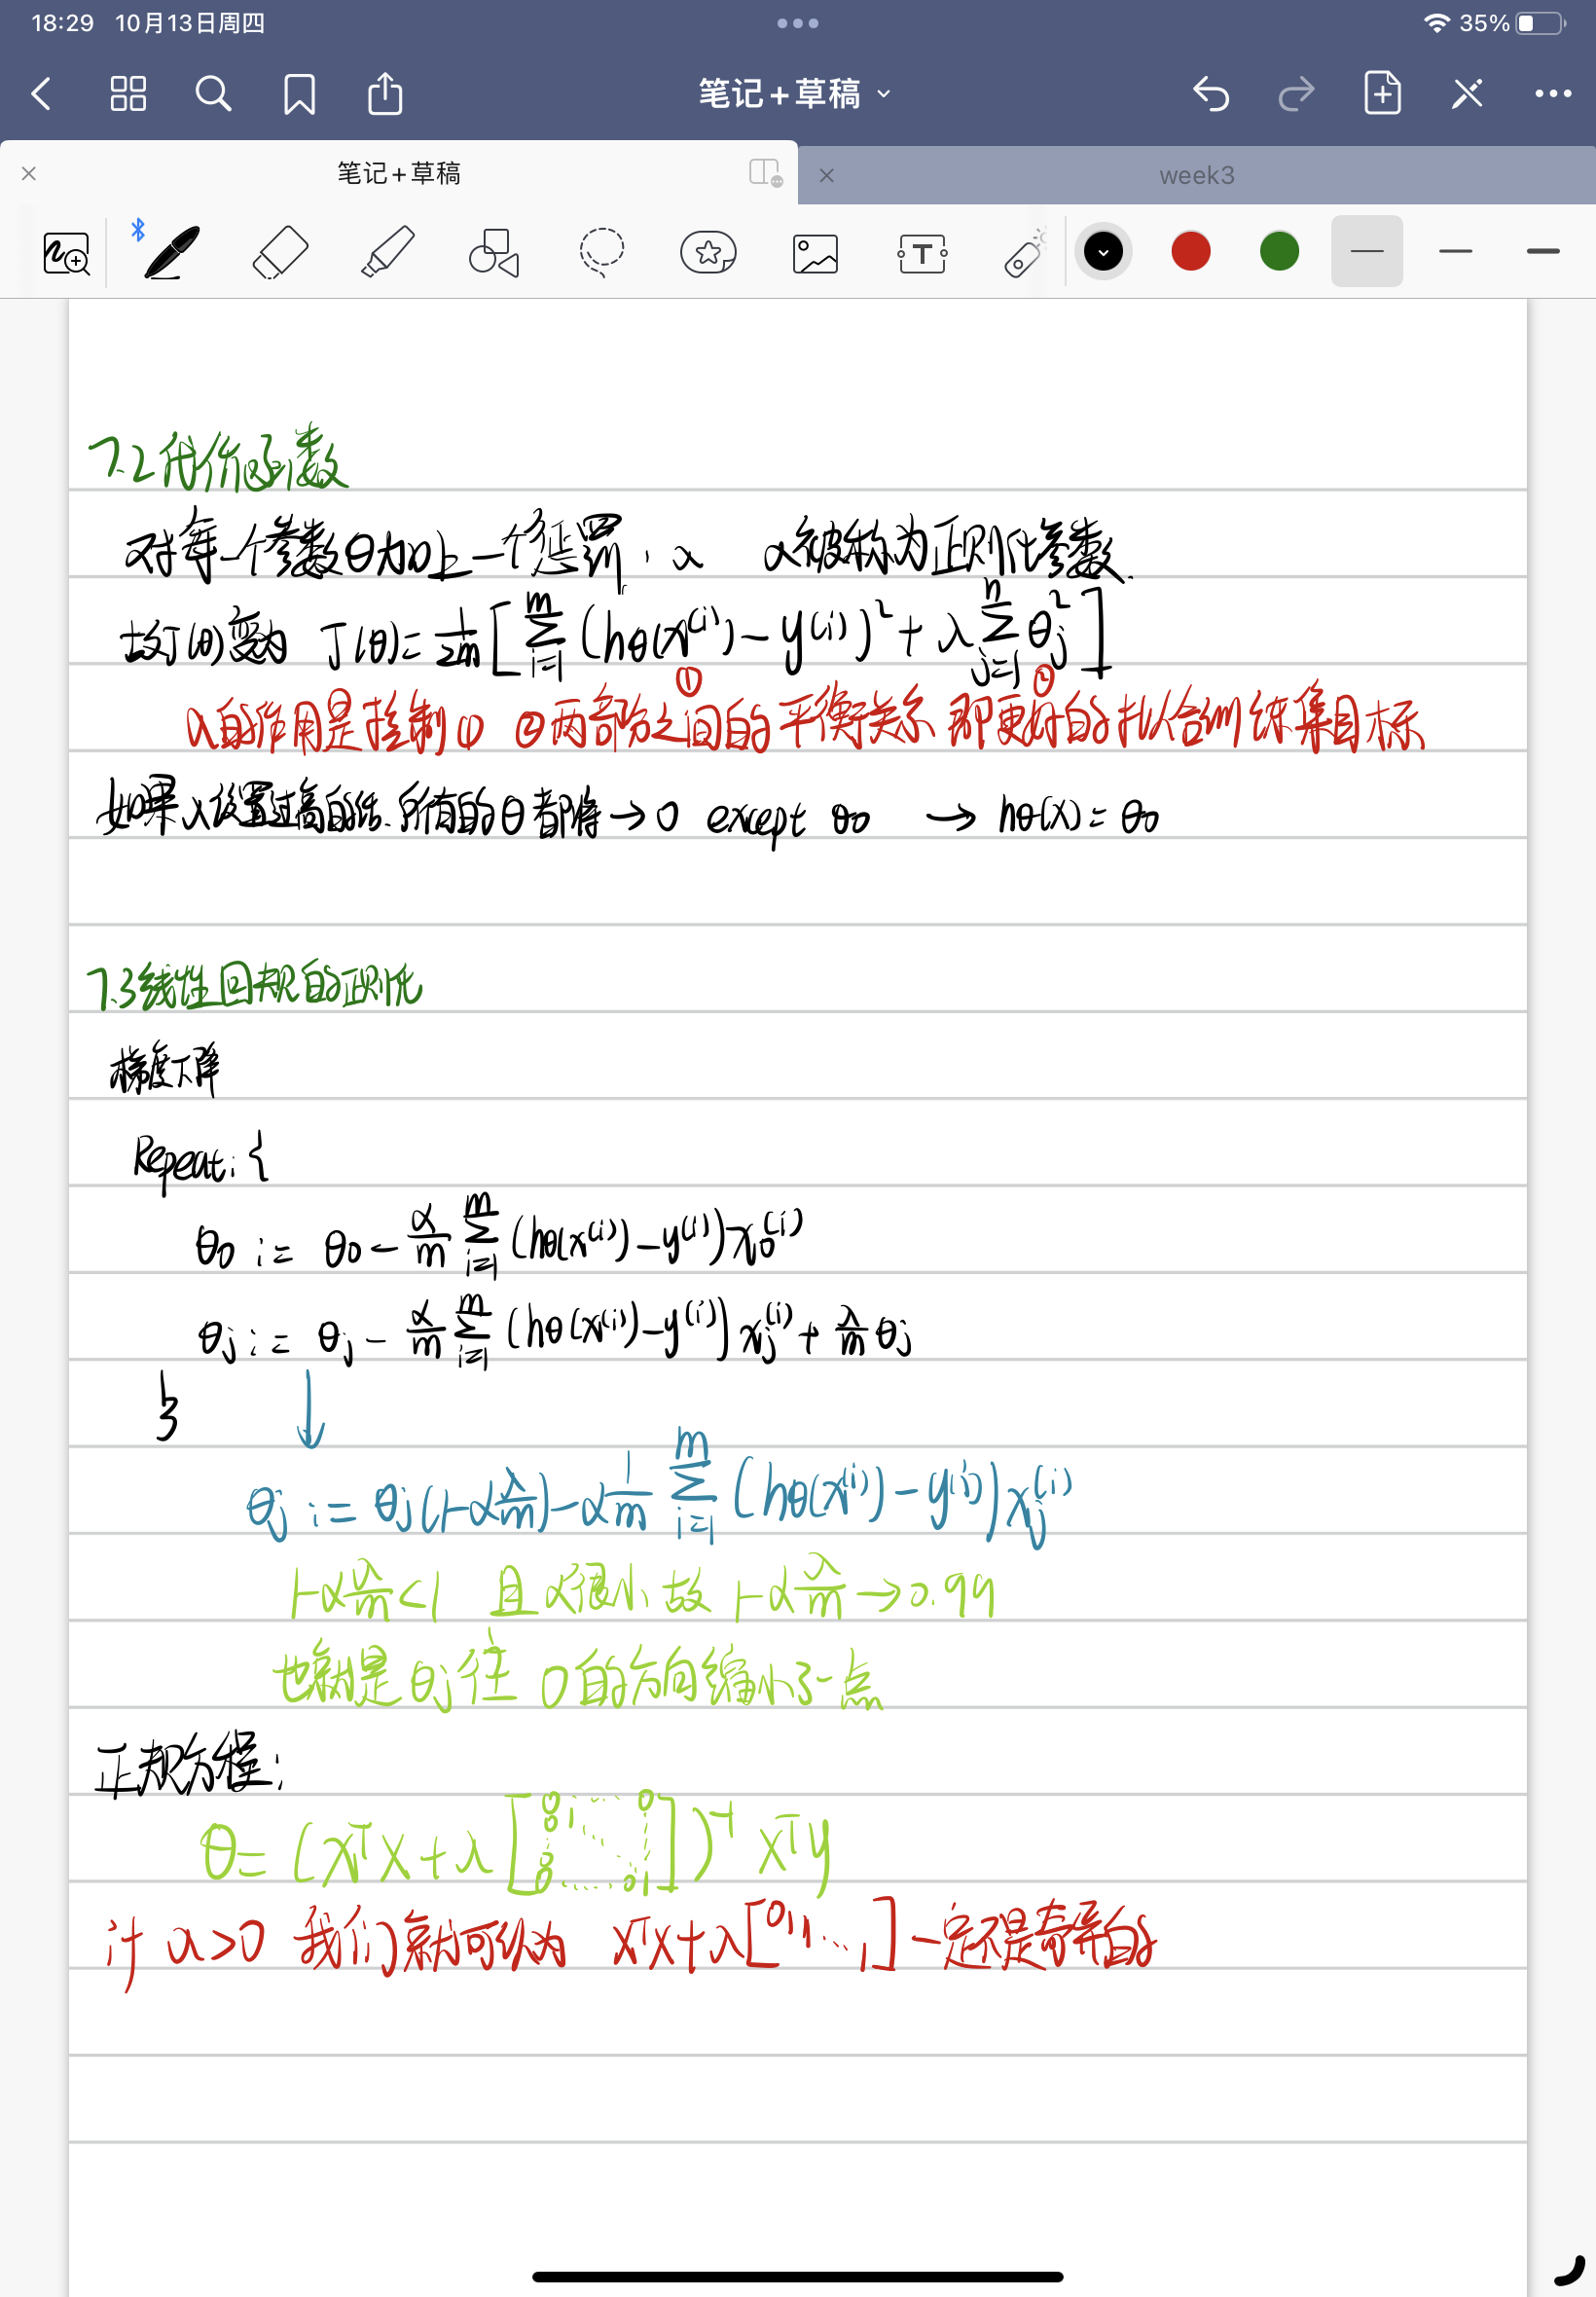 18:29 10月13日周四
35%
笔记+草稿
笔记+草稿
week3
T
7.2代价函数
对每一个参数θ加上一个惩罚:λ λ被称为正则化参数.
故J(θ)变为 J(θ)= 1/2m [ Σ_{i=1}^{m} (hθ(x^(i))-y^(i))² + λ Σ_{j=1}^{n} θj² ]
① ②
λ的作用是控制① ②两部分之间的平衡关系 即更好的拟合训练集目标
如果λ设置过高的话.所有的θ都将→0 except θ0 → hθ(x)=θ0
7.3线性回规的正则化
梯度下降
Repeat:{
θ0 := θ0 - α/m Σ_{i=1}^{m} (hθ(x^(i))-y^(i)) x0^(i)
θj := θj - α/m Σ_{i=1}^{m} (hθ(x^(i))-y^(i)) xj^(i) + λ/m θj
} ↓
θj := θj(1-α λ/m) - α 1/m Σ_{i=1}^{m} (hθ(x^(i))-y^(i)) xj^(i)
1-α λ/m <1 且α很小 故 1-α λ/m →0.99
也就是θj往 0的方向缩小了一点
正规方程:
θ= (XᵀX+λ[0 ... 0 0 1 ... 0 ... 0 1])⁻¹ Xᵀy
λ>0 我们就可认为 XᵀX+λ[0 1 1 ... 1] 一定不是奇异的